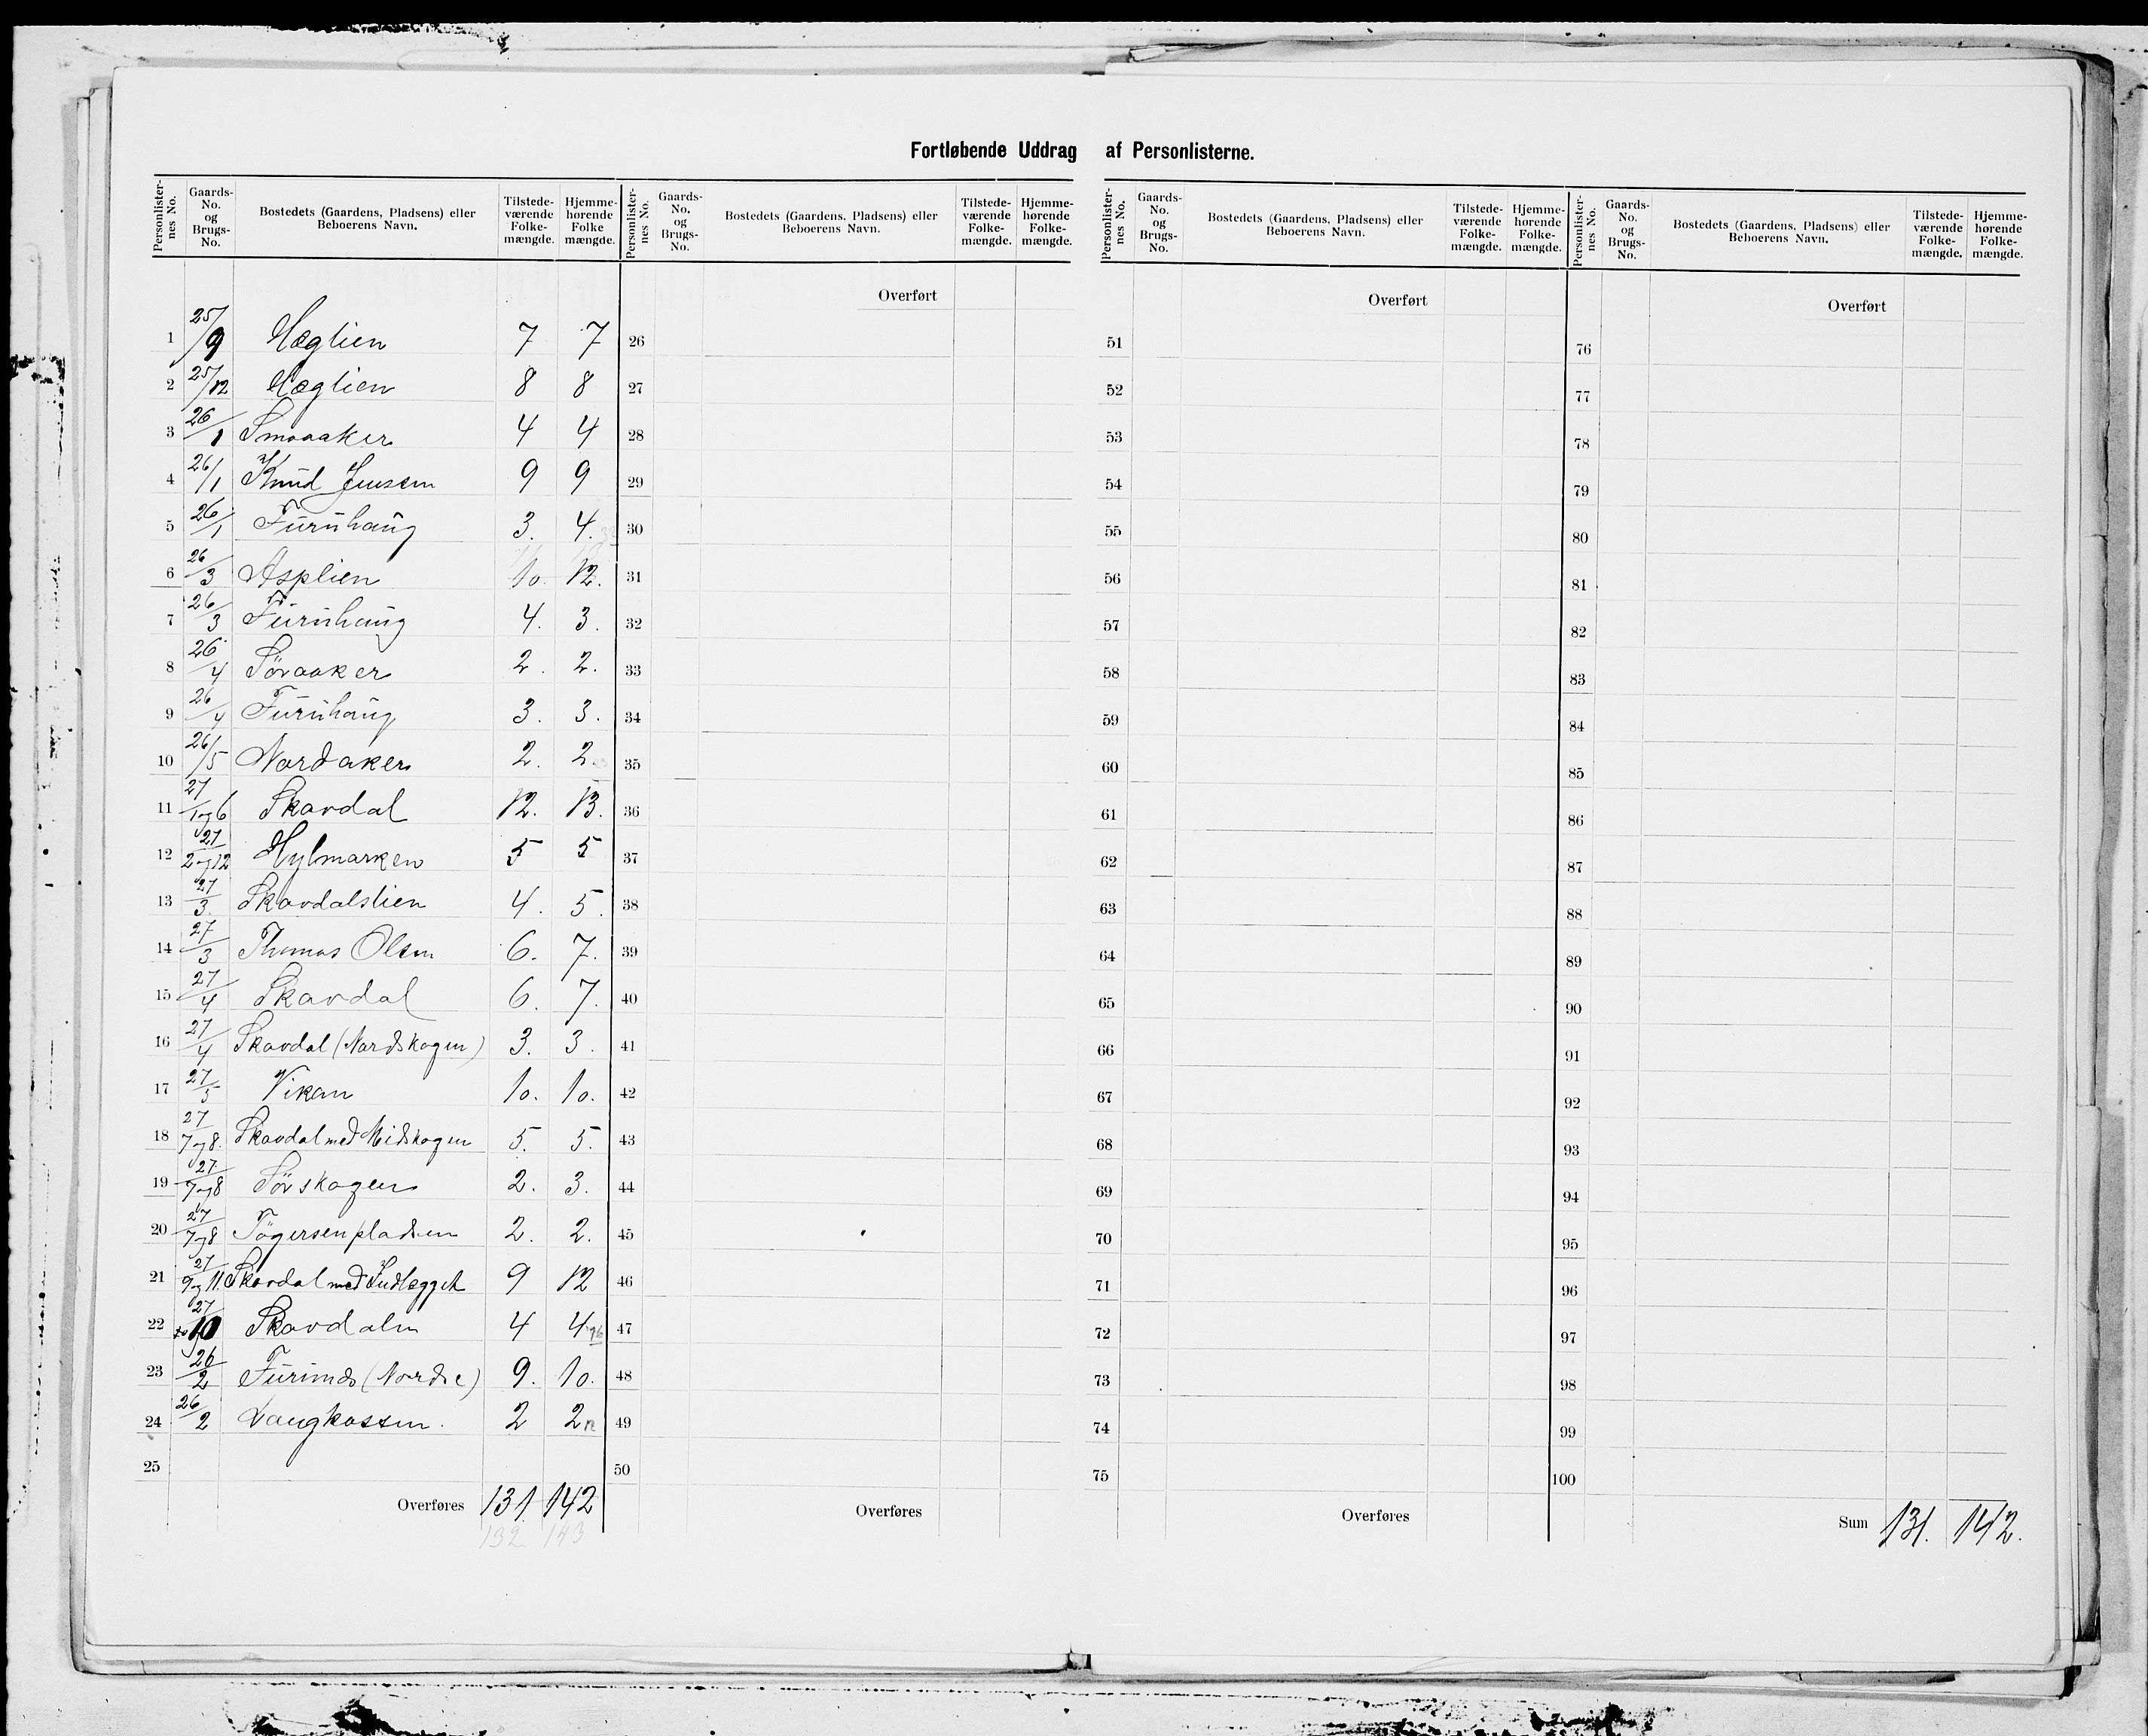 Fortløbende Uddrag af Personlisterne.
Personlister-nes No. Gaards-No. og Brugs-No. Bostedets (Gaardens, Pladsens) eller Beboerens Navn. Tilstede-værende Folke-mængde. Hjemme-hørende Folke mængde. Personlister-nes No. Gaards-No. og Brugs-No. Bostedets (Gaardens, Pladsens) eller Beboerens Navn. Tilstede-værende Folke-mængde. Hjemme-hørende Folke-mængde. Personlister-nes No. Gaards-No. og Brugs-No. Bostedets (Gaardens, Pladsens) eller Beboerens Navn. Tilstede-værende Folke-mængde. Hjemme-hørende Folke-mængde. Personlister-nes No. Gaards-No. og Brugs-No. Bostedets (Gaardens, Pladsens) eller Beboerens Navn. Tilstede-værende Folke-mængde. Hjemme-hørende Folke-mængde.
Overført Overført Overført
1 25/9 Hæglien 7 7 26 51 76
2 25/12 Hæglien 8 8 27 52 77
3 26/1 Smaaaker 4 4 28 53 78
4 26/1 Knud Jenssen 9 9 29 54 79
5 26/1 Furuhaug 3. 4. 30 55 80
6 26/3 Asplien 10. 12. 31 56 81
7 26/3 Furuhaug 4. 3. 32 57 82
8 26/4 Söraaker 2. 2. 33 58 83
9 26/4 Furuhaug 3. 3. 34 59 84
10 26/5 Nordaker 2. 2. 35 60 85
11 27/1og6 Skavdal 12. 13. 36 61 86
12 27/2og12 Hylmarken 5 5 37 62 87
13 27/3. Skavdalslien 4. 5. 38 63 88
14 27/3 Thomas Olsen 6. 7. 39 64 89
15 27/4 Skavdal 6. 7. 40 65 90
16 27/4 Skavdal (Nordskogen) 3. 3. 41 66 91
17 27/5 Vikan 10. 10. 42 67 92
18 27/7og8. Skavdal med Midskogen 5. 5. 43 68 93
19 27/7og8 Sörskogen 2. 3. 44 69 94
20 27/7og8 Tögersenpladsen 2. 2. 45 70 95
21 27/9og11. Skavdal med Indlægget 9 12 46 71 96
22 27/10 Skavdalen 4 4 47 72 97
23 26/2 Furunes (Nordre) 9. 10. 48 73 98
24 26/2 Langkassen. 2 2 49 74 99
25 50 75 100
Overføres 131. 142 Overføres Overføres Sum 131. 142.
132 143